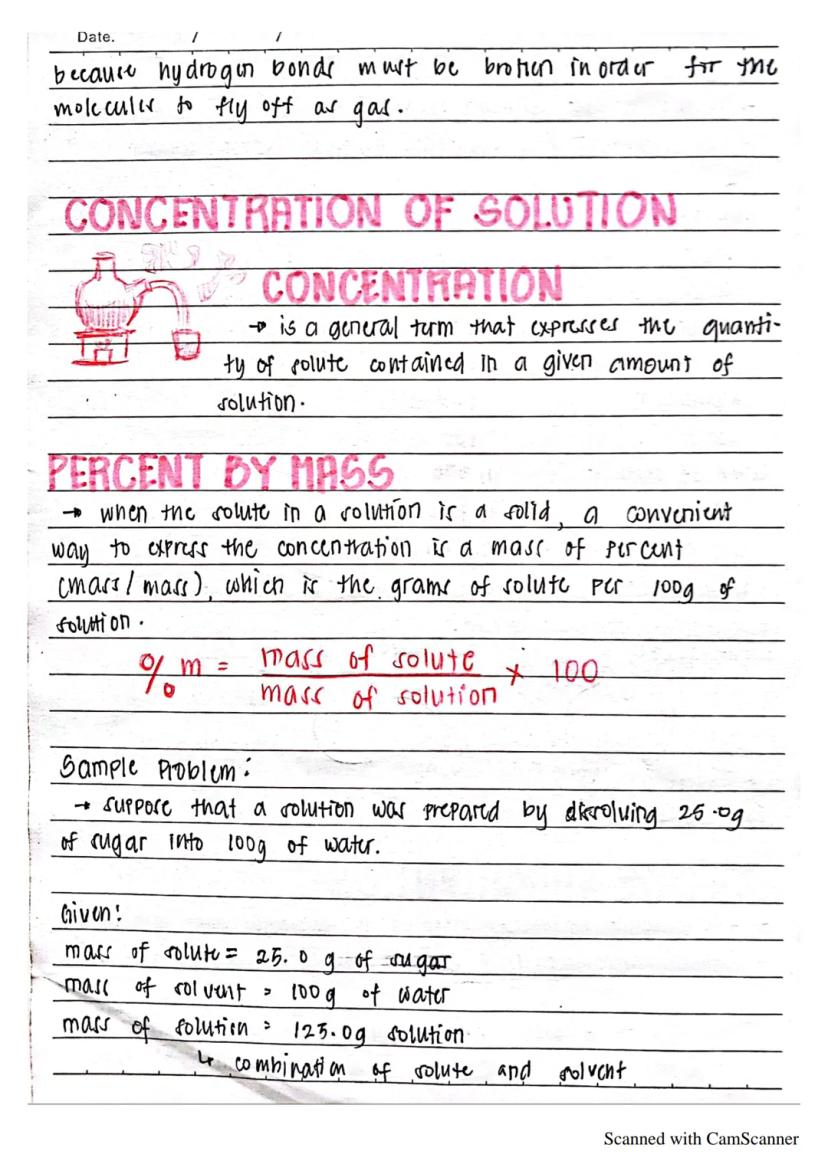 Date. / /
because hydrogen bonds must be broken in order for the
molecules to fly off as gas.
CONCENTRATION OF SOLUTION
CONCENTRATION
→ is a general term that expresses the quanti-
ty of solute contained in a given amount of
solution.
PERCENT BY MASS
→ when the solute in a solution is a solid, a convenient
way to express the concentration is a mass of percent
(mass/mass), which is the grams of solute per 100g of
solution.
% m = mass of solute / mass of solution × 100
Sample Problem:
→ suppose that a solution was prepared by dissolving 25.0g
of sugar into 100g of water.
Given:
mass of solute = 25.0 g of sugar
mass of solvent = 100g of water
mass of solution = 125.0g solution
↳ combination of solute and solvent
Scanned with CamScanner